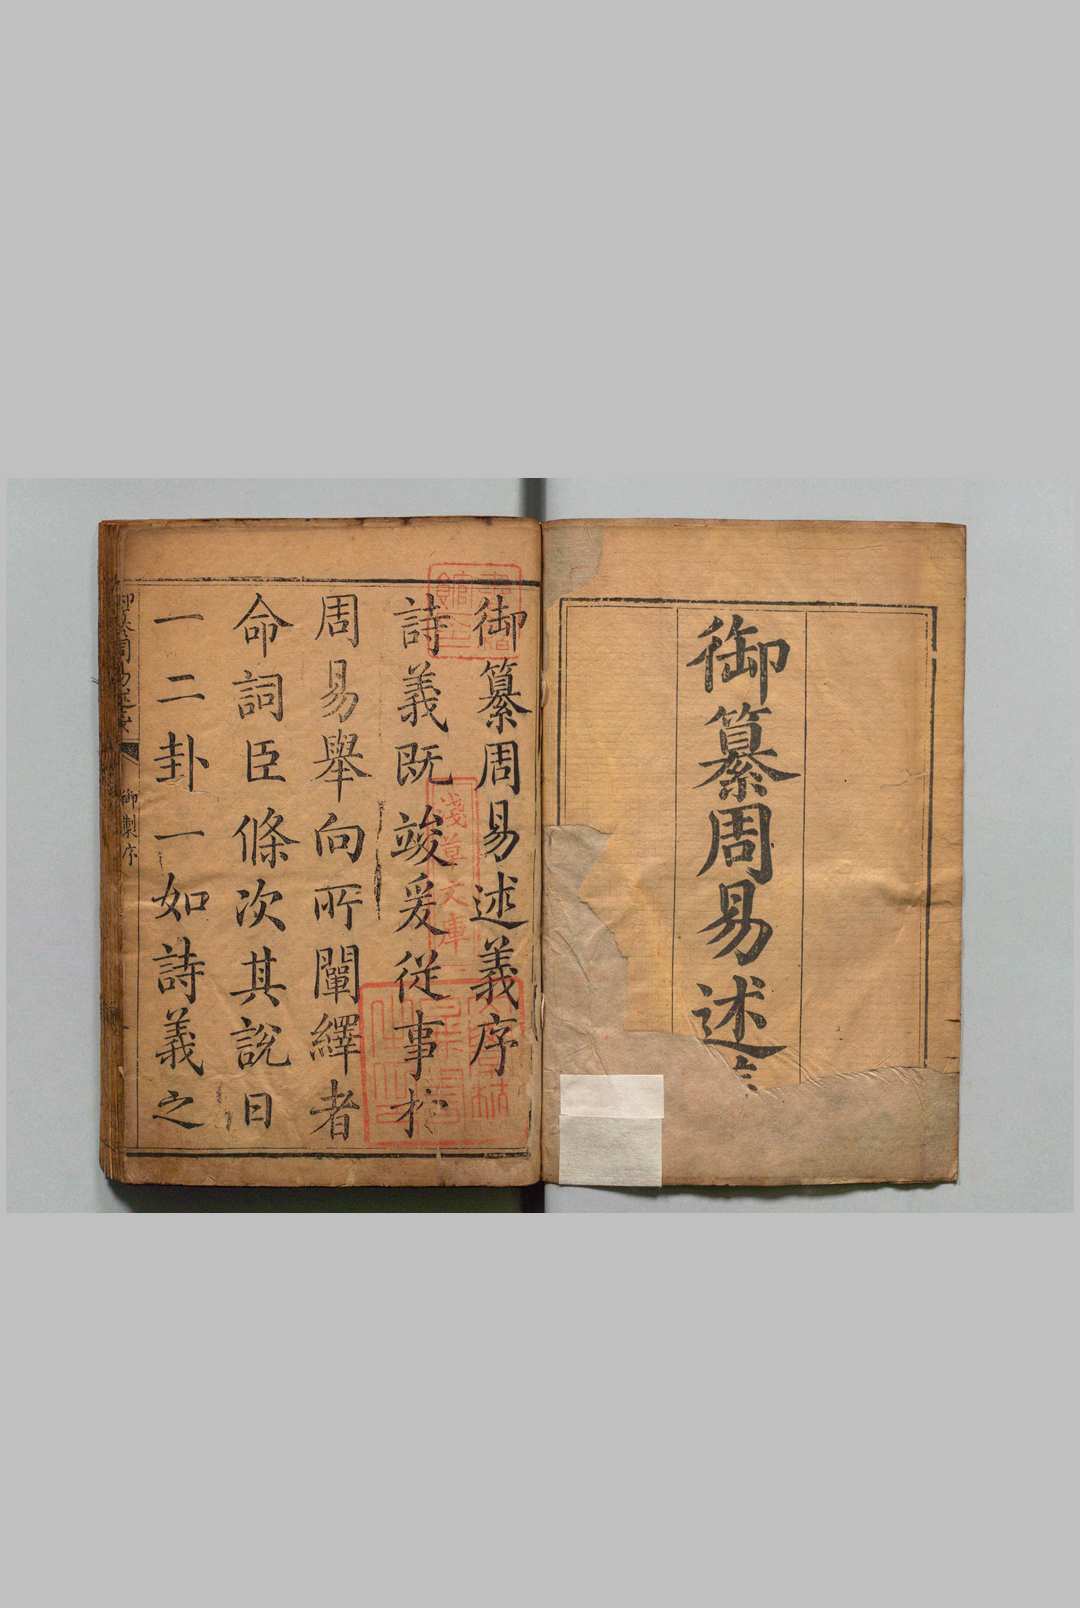 御纂周易述
御纂周易述義序
詩義既竣爰從事於
周易舉向所闡繹者
命詞臣條次其說日
一二卦一如詩義之
御纂周易述義
御製序
淺草文庫